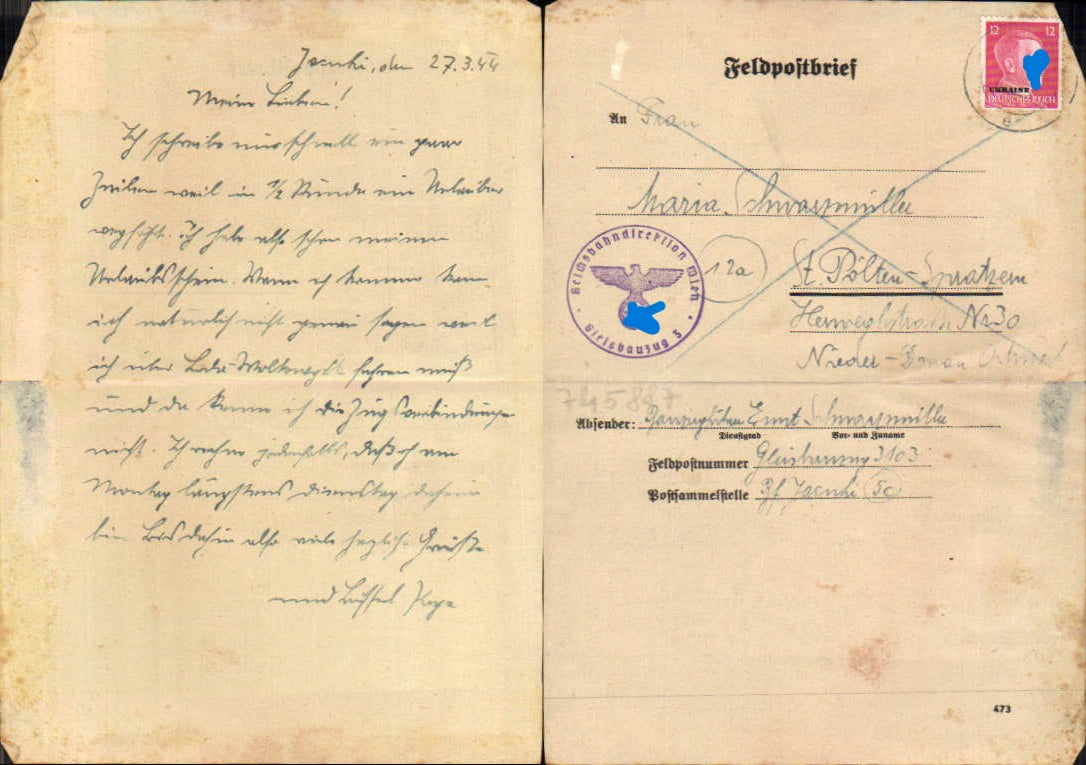 Jasnki, den 27.3.44
Meine Lieben!
Ich schreibe nur schnell ein paar
Zeilen weil in 1/2 Stunde ein Urlauber
wegfährt. Ich habe also schon meinen
Urlaubsschein. Wann ich komme kann
ich natürlich nicht genau sagen weil
ich über fahren muß
und da kenne ich die Zugsverbindungen
nicht. Ich rechne jedenfalls, daß ich am
Montag längstens Dienstag daheim
bin. Bis dahin also viele herzliche Grüße
und Bussel Papa
Feldpostbrief
12 12
UKRAINE
DEUTSCHES REICH
An Frau
Maria Schwarzmüller
Reichsbahndirektion Wien
Gleisbauzug 3
12a
St. Pölten-Spratzern
Herweghstraße Nr 30
Nieder-Donau Ostmark
745887
Absender: Ernst Schwarzmüller
Dienstgrad Vor- und Zuname
Feldpostnummer Gleisbauzug 3103
Postsammelstelle Bf. 5c
473